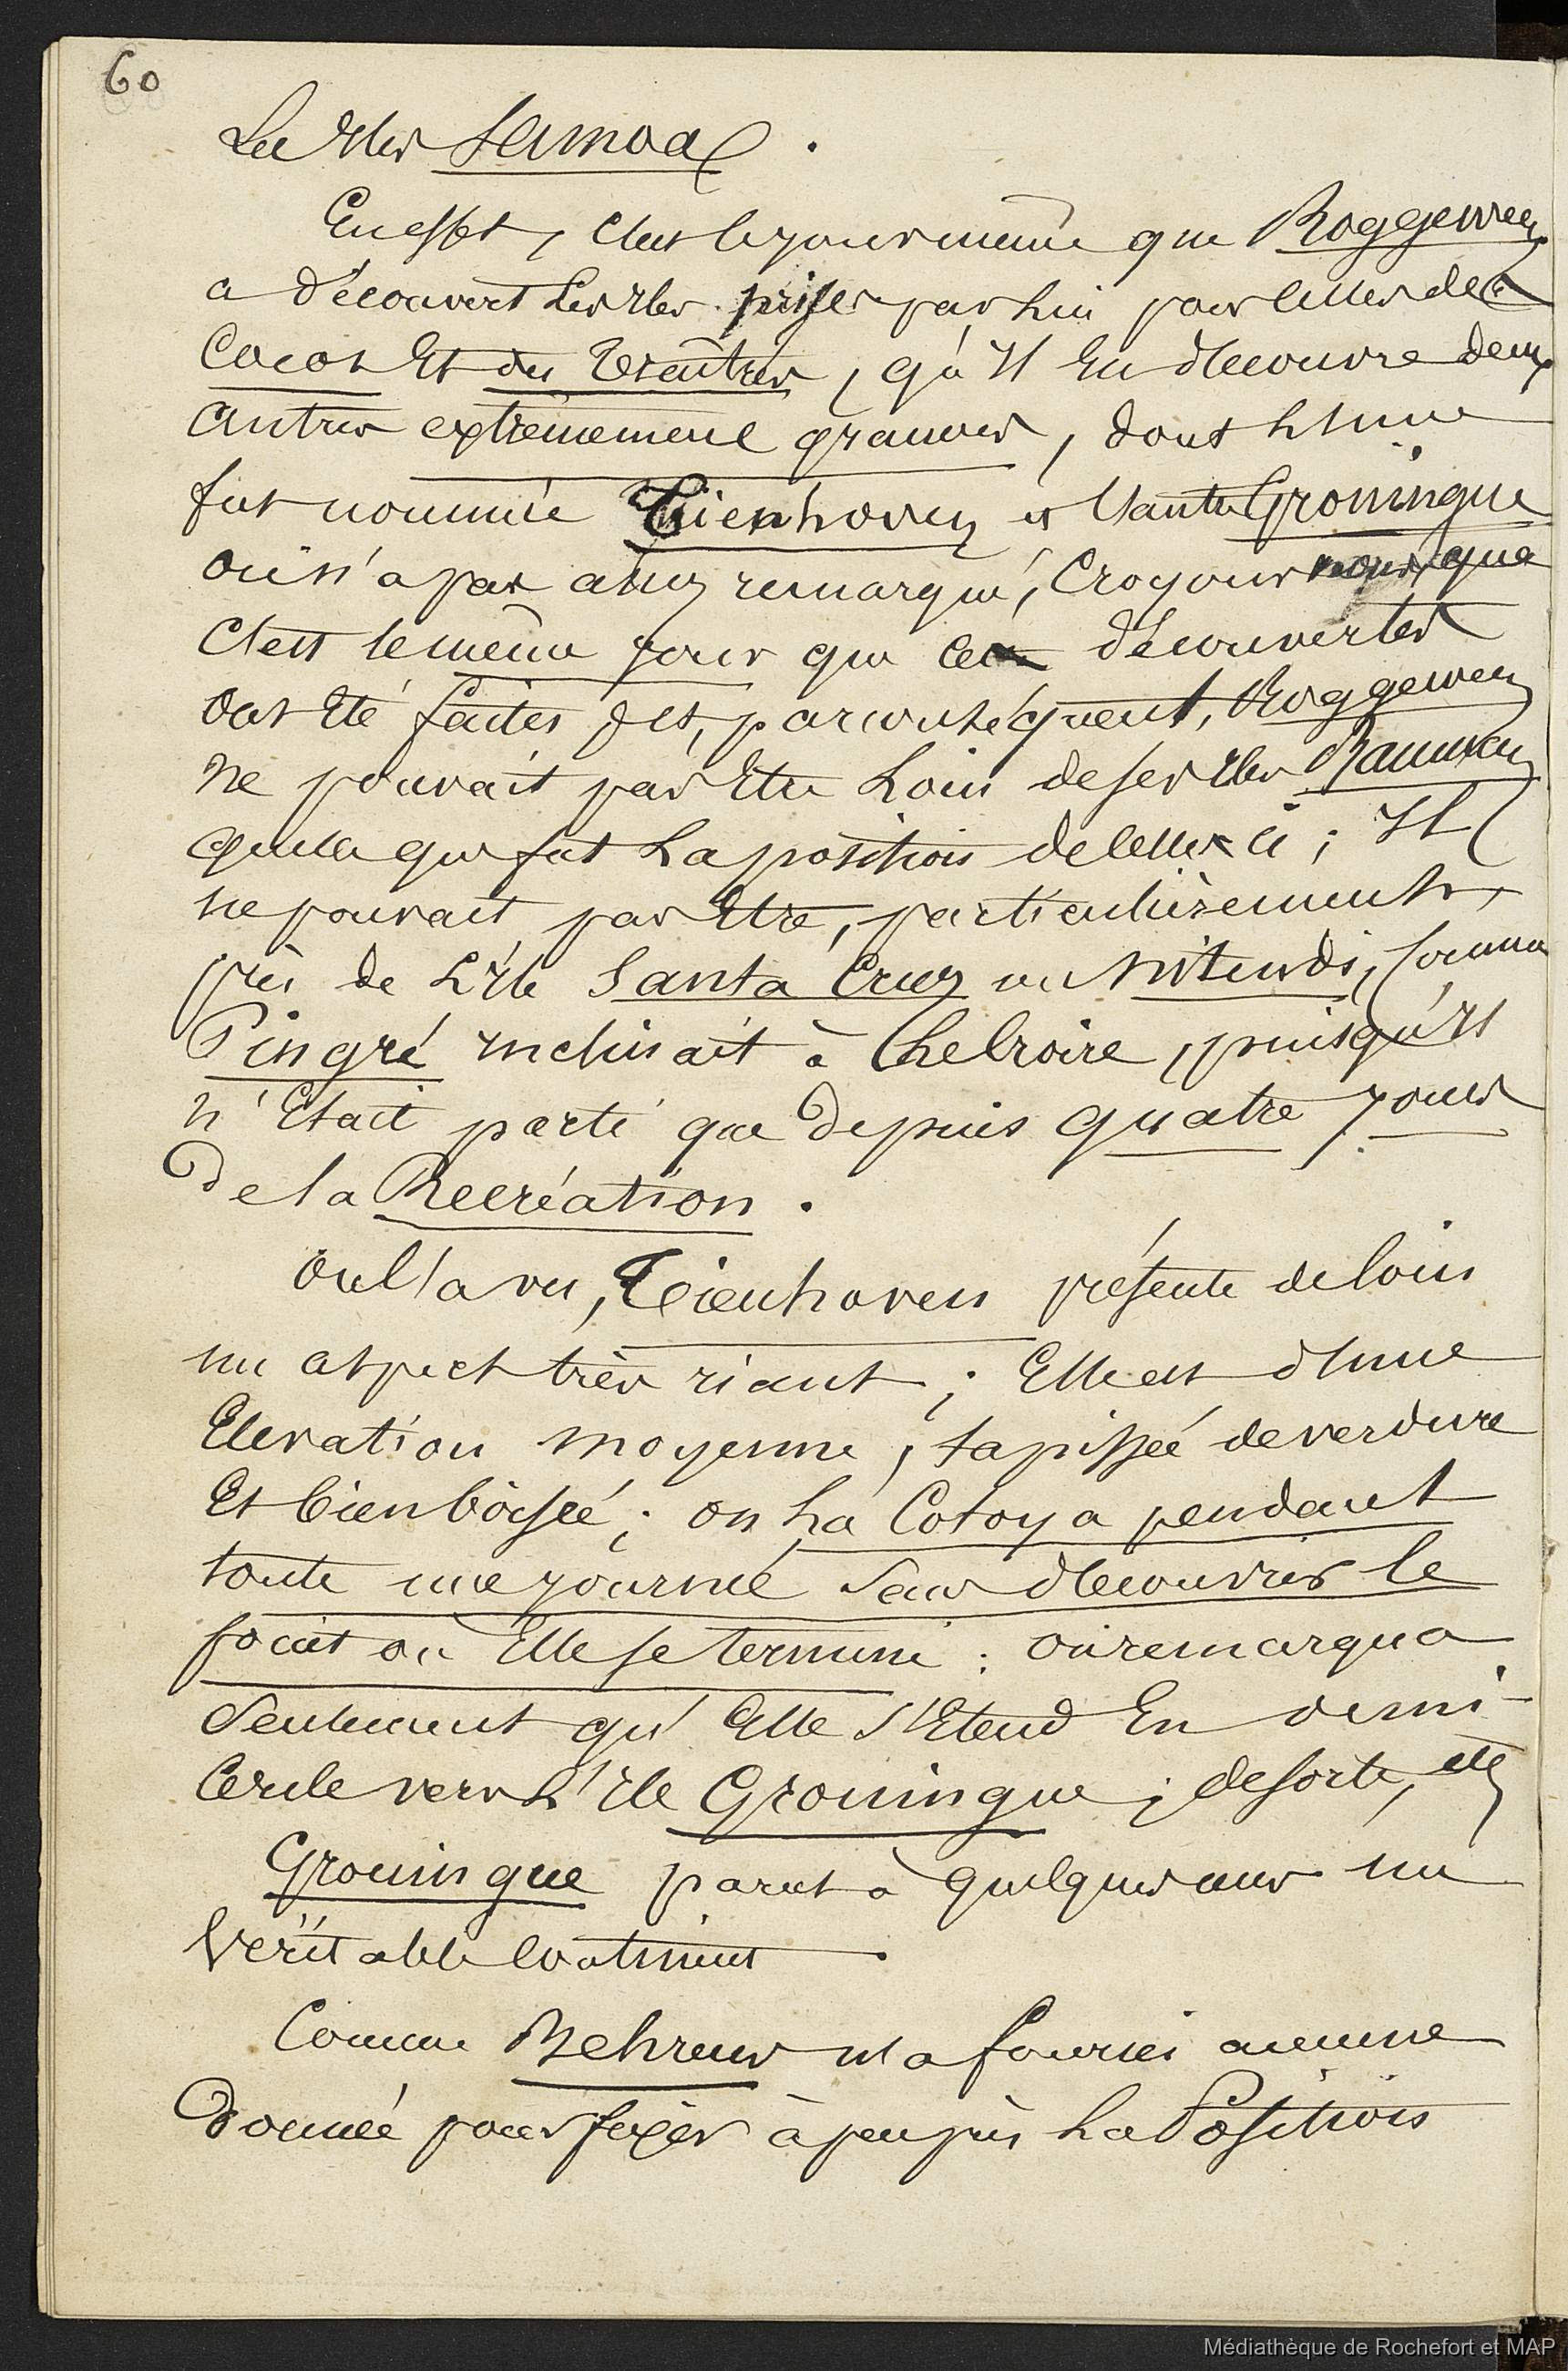 60
Les Iles Samoa.
En effet, c'est le jour même que Roggeween
a découvert les Iles prises par lui pour celles des
Cocos Et des Traîtres, qu'Il En découvre deux
autres extrêmement grandes, dont l'une
fut nommée Tienhoven et l'autre Groningue
on n'a pas assez remarqué, Croyons nous, que
C'est le même jour que ces découvertes
ont Eté faites Et, par conséquent, Roggeween
ne pouvait pas Etre Loin de ses Iles Bauman
quelle que fut La position de celles ci ; Il
ne pouvait pas Etre, particulièrement,
près de L'Ile Santa Cruz ou Nitendi, Comme
Pingré Inclinait à Le Croire, puisqu'Il
n'Etait parti que depuis quatre jours
de la Recréation.
On l'a vu, Tienhoven présente de loin
un aspect très riant ; Elle est d'une
Elevation moyenne, tapissée de verdure
Et bien boisée ; on La Cotoya pendant
toute une journée sans découvrir le
point où Elle se termine : on remarqua
Seulement qu'Elle s'Etend En demi-
Cercle vers L'Ile Groningue ; de sorte, etc
Groningue parut à quelques uns un
Véritable Continent.
Comme Behrens n'a fourni aucune
donnée pour fixer à peu près La Position
Médiathèque de Rochefort et MAP